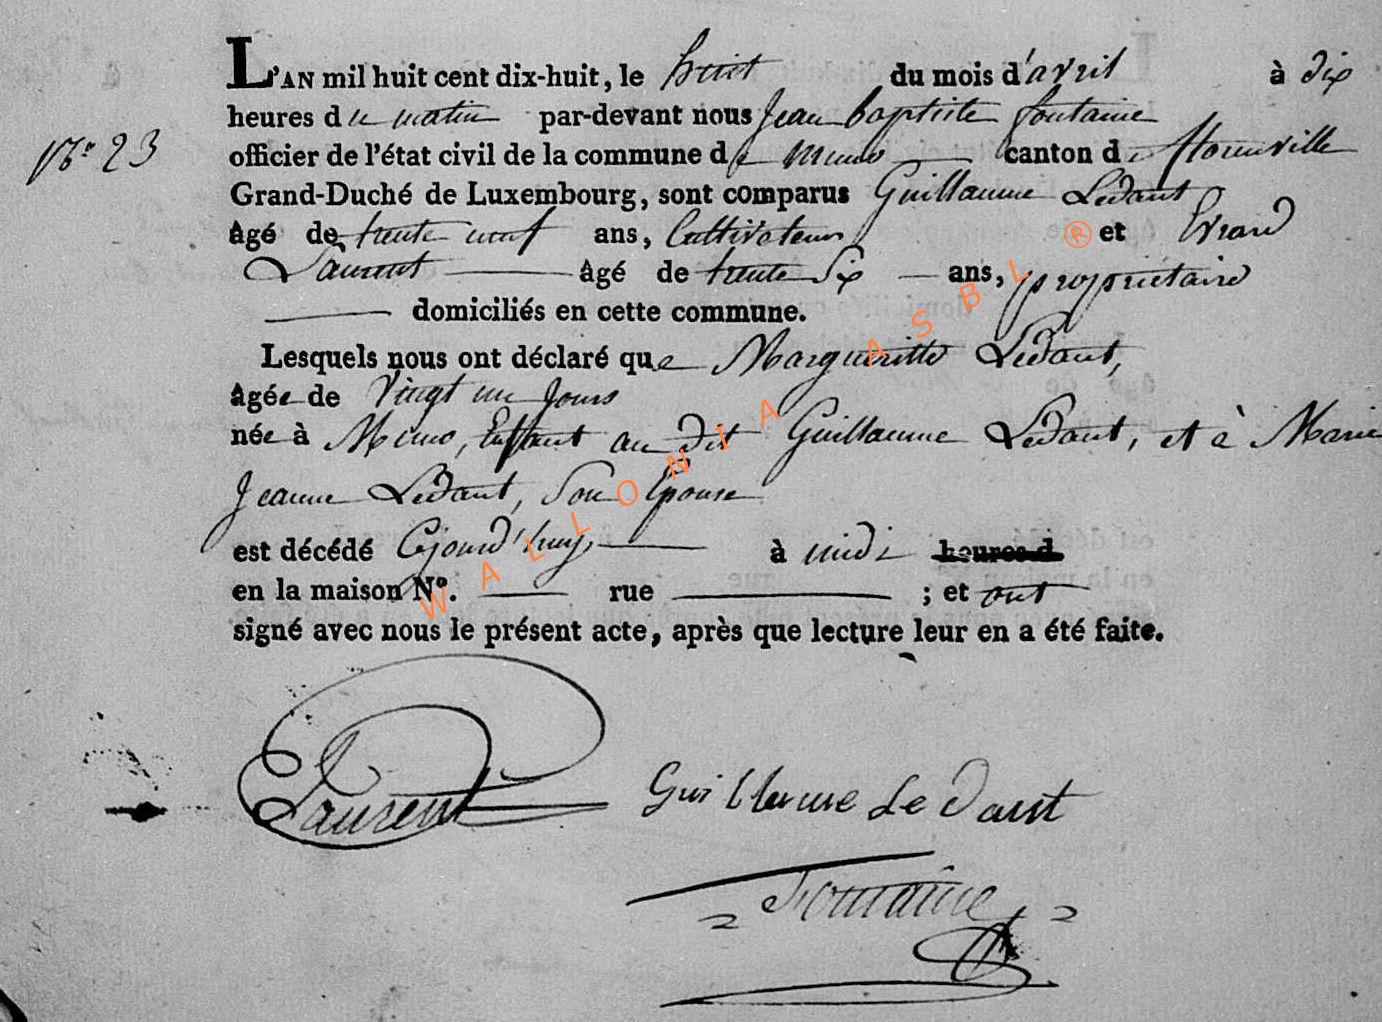 L'AN mil huit cent dix-huit, le huit du mois d'avril à dix
heures du matin par-devant nous Jean baptiste fontaine
N° 23
officier de l'état civil de la commune de Muno canton de florenville
Grand-Duché de Luxembourg, sont comparus Guillaume Ledant
âgé de trente neuf ans, Cultivateur et Evrard
Laurent âgé de trente Six ans, propriétaire
domiciliés en cette commune.
Lesquels nous ont déclaré que Margueritte Ledant,
âgée de Vingt un Jours
née à Muno, Enfant au dit Guillaume Ledant, et à Marie
Jeanne Ledant, Son Epouse
est décédé Cejourd'huy à midi heures d
en la maison N°. rue ; et ont
signé avec nous le présent acte, après que lecture leur en a été faite.
Laurent Guillaume Le dant
Fontaine
WALLONIA ASBL ®